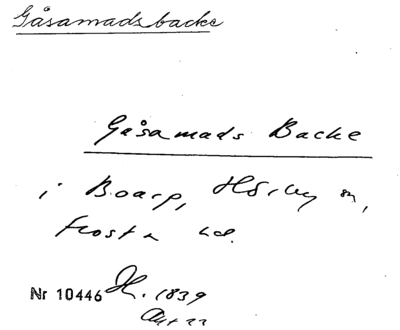 Gåsamadsbacke
Gåsamads Backe
i Boarp, Hörby sn,
Frosta hd.
Nr 10446 H. 1839
Akt 22